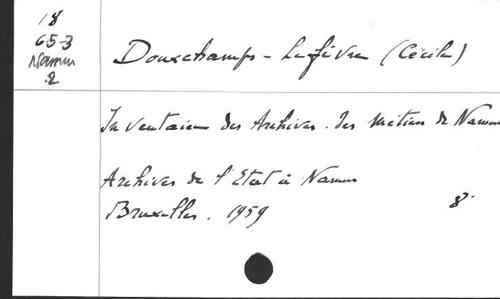 18
65-3
Namur
2
Douxchamps - Lefèvre (Cécile)
Inventaire des Archives des Métiers de Namur
Archives de l'Etat à Namur
Bruxelles. 1959
8°